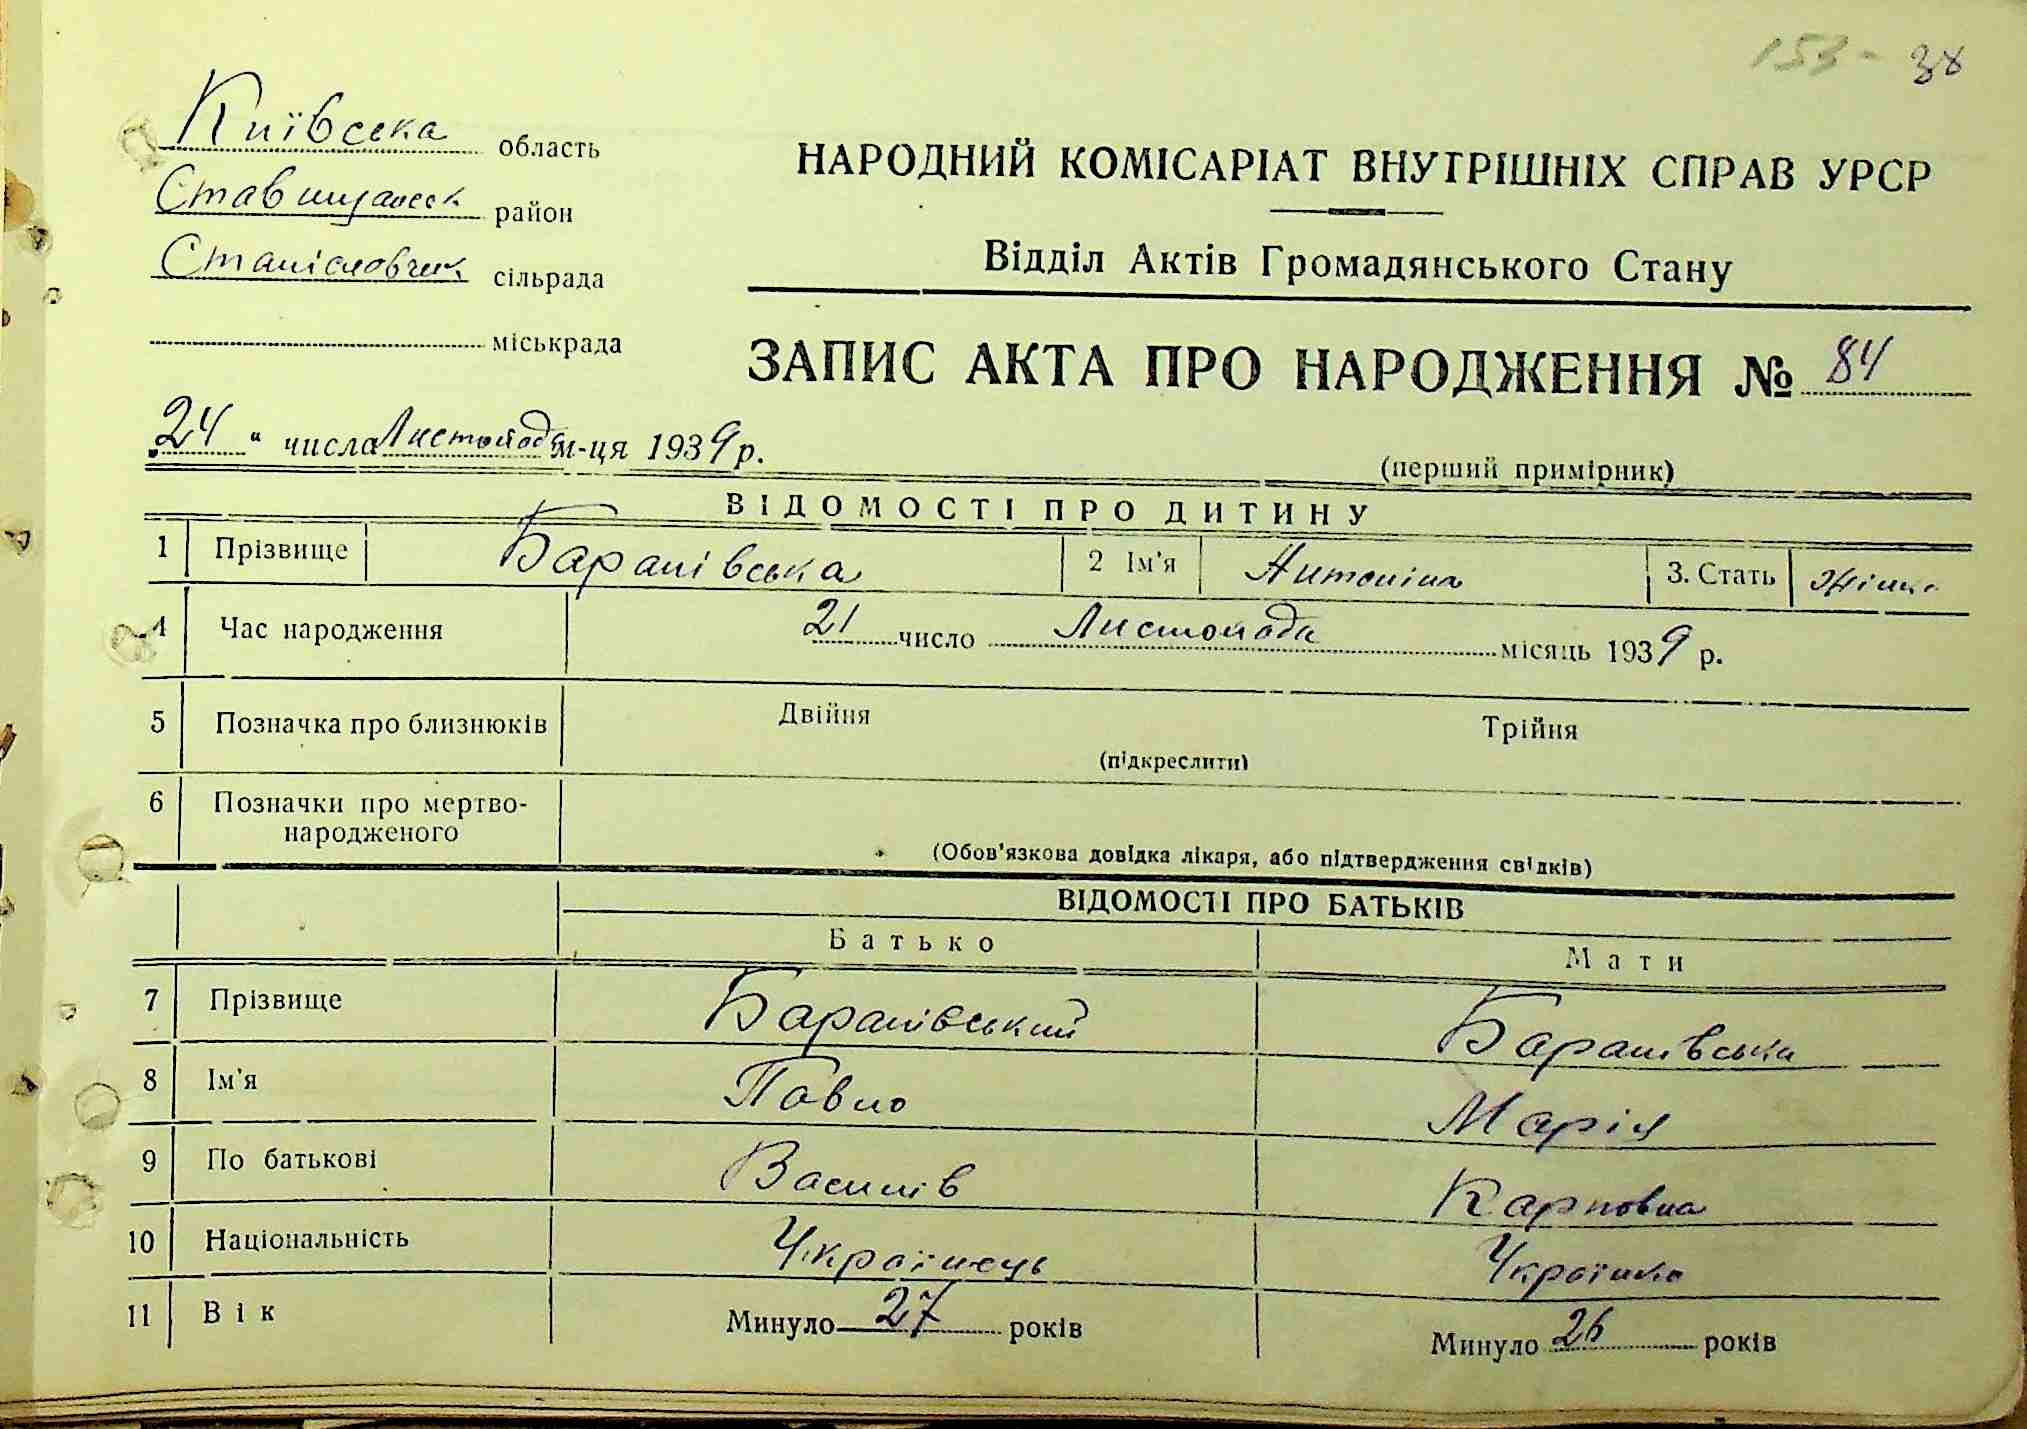 153 - 38
Київська область
Ставищанськ район
Станіславчик сільрада
міськрада
НАРОДНИЙ КОМІСАРІАТ ВНУТРІШНІХ СПРАВ УРСР
Відділ Актів Громадянського Стану
ЗАПИС АКТА ПРО НАРОДЖЕННЯ № 84
„24“ числа Листопада м-ця 1939 р.
(перший примірник)
ВІДОМОСТІ ПРО ДИТИНУ
1 Прізвище Баранівська 2 Ім'я Антоніна 3. Стать жіноч
4 Час народження 21 число Листопада місяць 1939 р.
5 Позначка про близнюків Двійня Трійня
(підкреслити)
6 Позначки про мертво-
народженого
(Обов'язкова довідка лікаря, або підтвердження свідків)
ВІДОМОСТІ ПРО БАТЬКІВ
Батько Мати
7 Прізвище Баранівський Баранівська
8 Ім'я Павло Марія
9 По батькові Василів Карповна
10 Національність Українець Українка
11 Вік Минуло 27 років Минуло 26 років